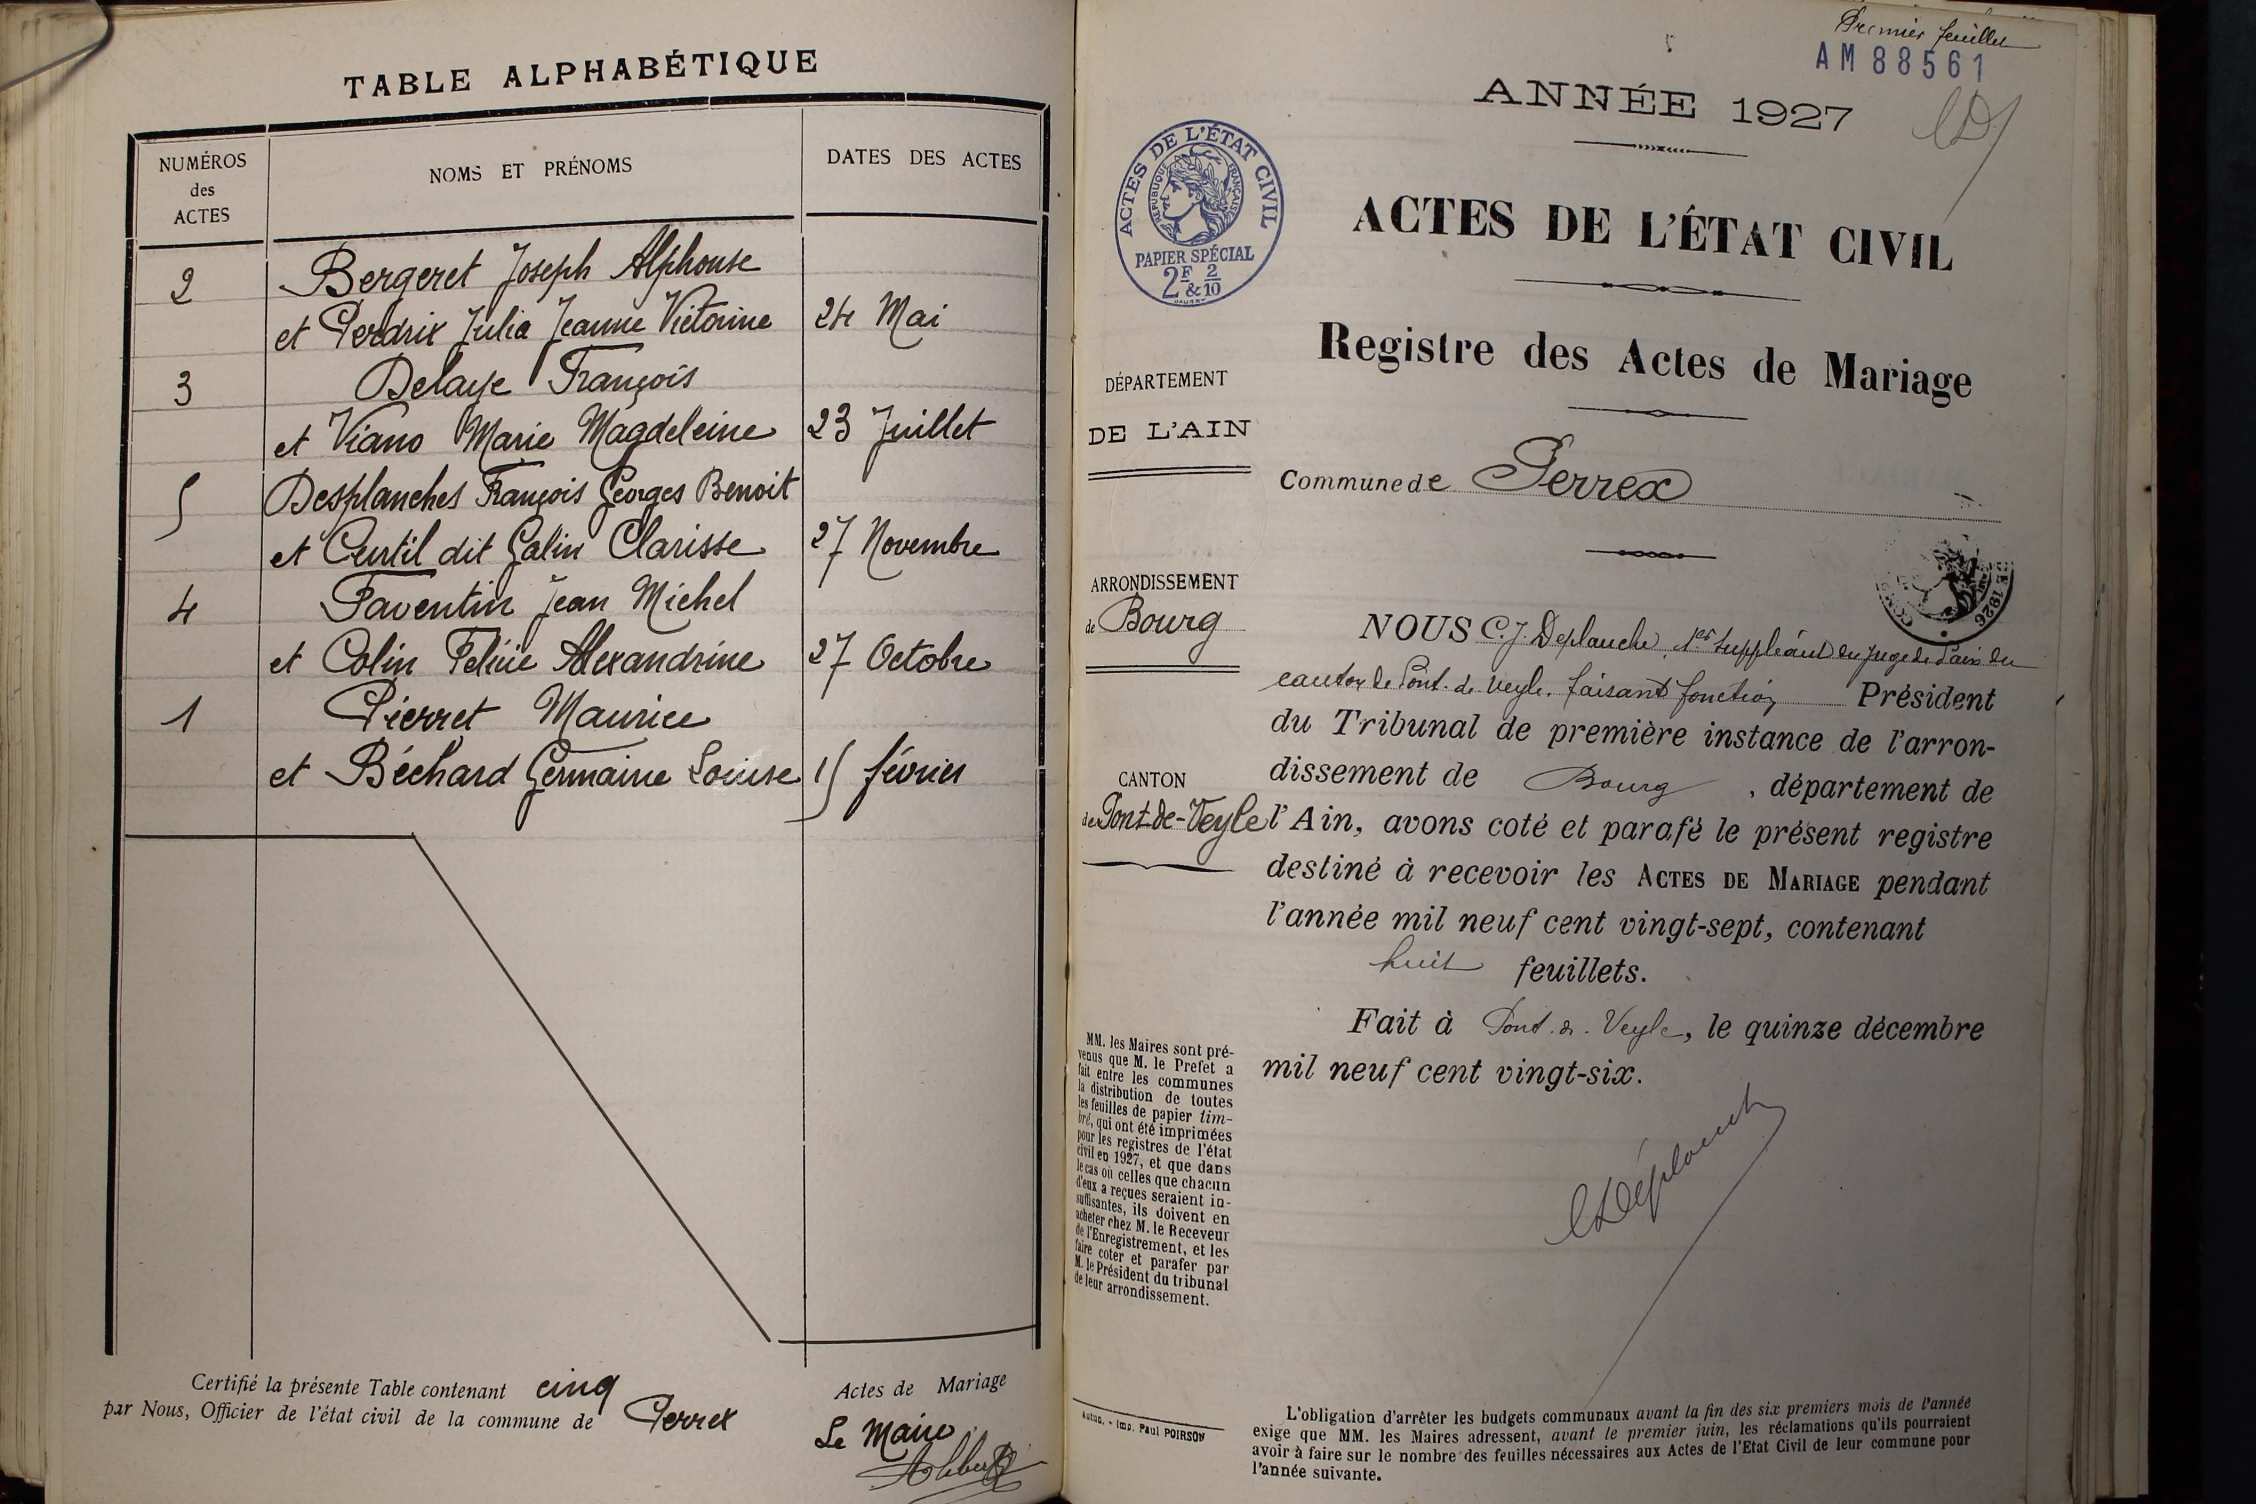 TABLE ALPHABÉTIQUE
NUMÉROS
des
ACTES
NOMS ET PRÉNOMS
DATES DES ACTES
2 Bergeret Joseph Alphonse
et Perdrix Julia Jeanne Victorine 24 Mai
3 Delaye François
et Viano Marie Magdeleine 23 Juillet
5 Desplanches François Georges Benoit
et Curtil dit Galin Clarisse 27 Novembre
4 Faventin Jean Michel
et Colin Felicie Alexandrine 27 Octobre
1 Pierret Maurice
et Béchard Germaine Louise 15 février
Certifié la présente Table contenant cinq Actes de Mariage
par Nous, Officier de l'état civil de la commune de Perrex
Le Maire
Premier feuillet
AM88561
ANNÉE 1927
ACTES DE L'ÉTAT CIVIL
RÉPUBLIQUE FRANÇAISE
PAPIER SPÉCIAL
2F & 2/10
ACTES DE L'ÉTAT CIVIL
Registre des Actes de Mariage
DÉPARTEMENT
DE L'AIN
Commune de Perrex
1926
ARRONDISSEMENT
de Bourg
CANTON
de Pont-de-Veyle
NOUS C. J. Deplanche, 1er suppléant du Juge de Paix du
canton de Pont-de-Veyle, faisant fonction Président
du Tribunal de première instance de l'arron-
dissement de Bourg, département de
l'Ain, avons coté et parafé le présent registre
destiné à recevoir les ACTES DE MARIAGE pendant
l'année mil neuf cent vingt-sept, contenant
huit feuillets.
Fait à Pont-de-Veyle, le quinze décembre
mil neuf cent vingt-six.
CDéplanche
MM. les Maires sont pré-
venus que M. le Prefet a
fait entre les communes
la distribution de toutes
les feuilles de papier tim-
bré, qui ont été imprimées
pour les registres de l'état
civil en 1927, et que dans
le cas où celles que chacun
d'eux a reçues seraient in-
suffisantes, ils doivent en
acheter chez M. le Receveur
de l'Enregistrement, et les
faire coter et parafer par
M. le Président du tribunal
de leur arrondissement.
Autun. - Imp. Paul POIRSON
L'obligation d'arrêter les budgets communaux avant la fin des six premiers mois de l'année
exige que MM. les Maires adressent, avant le premier juin, les réclamations qu'ils pourraient
avoir à faire sur le nombre des feuilles nécessaires aux Actes de l'Etat Civil de leur commune pour
l'année suivante.